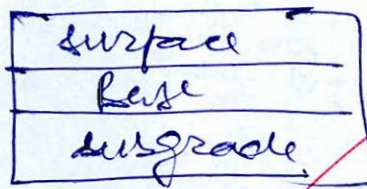 surface
Base
subgrade